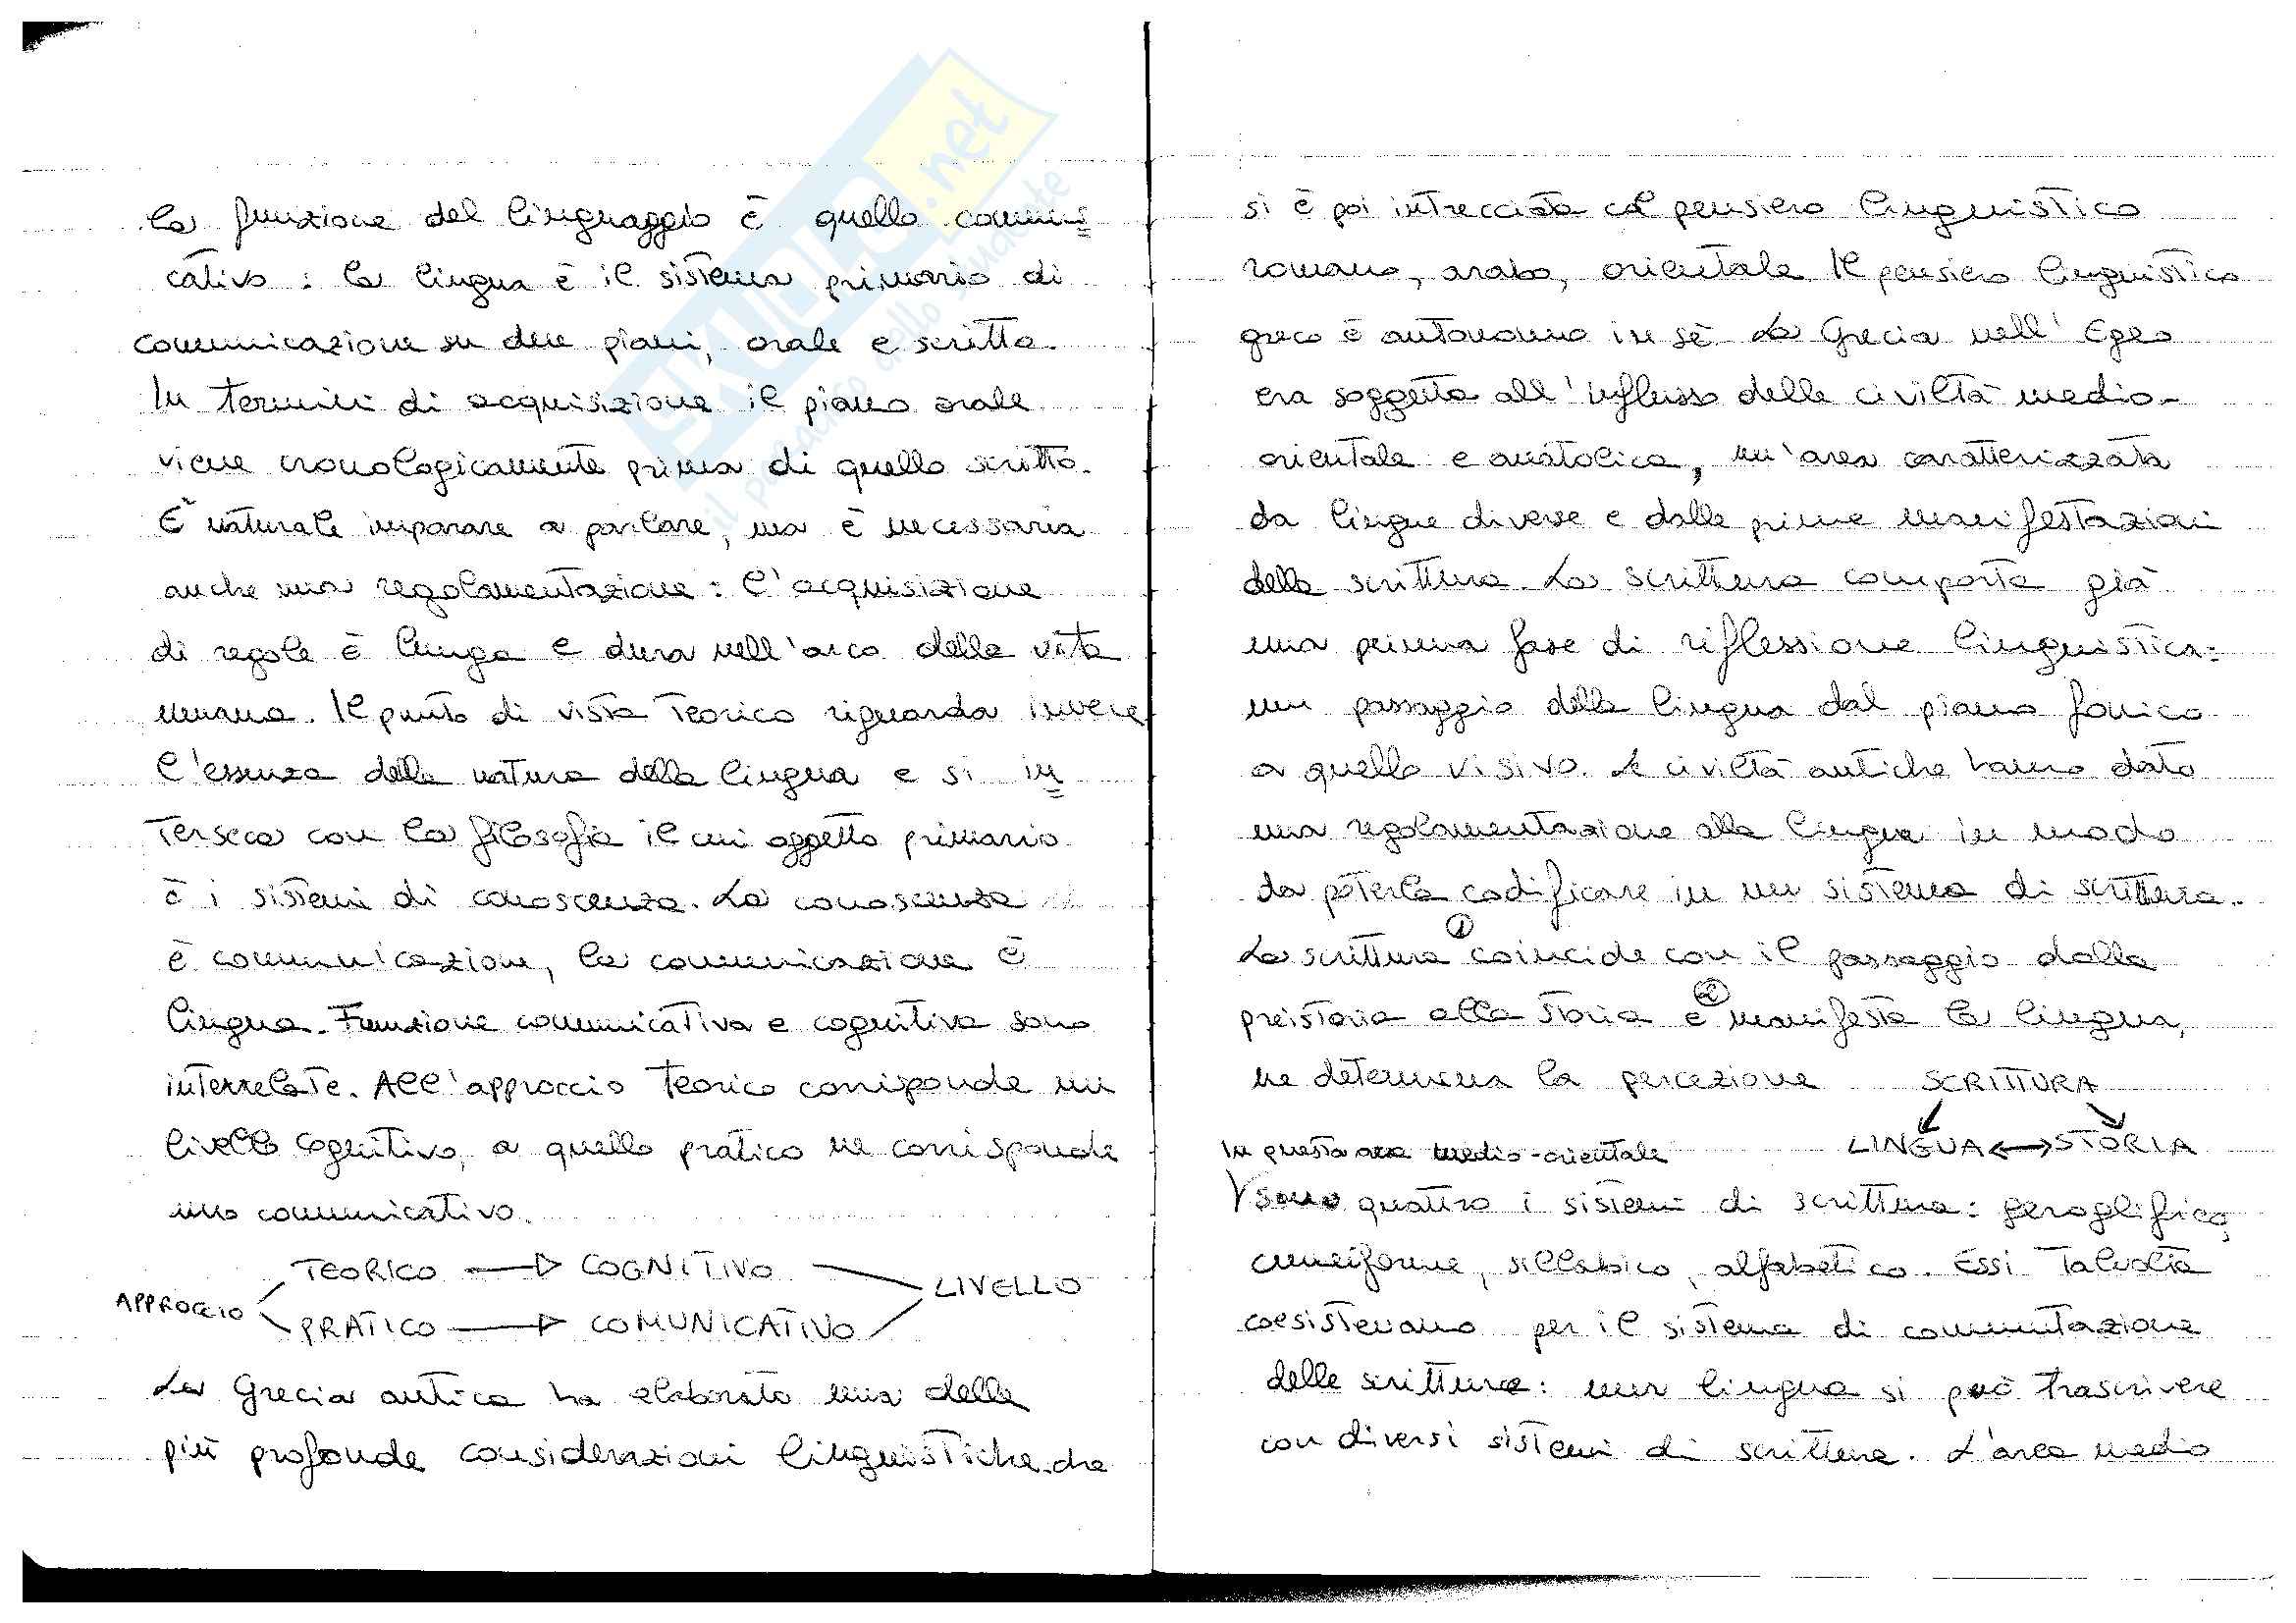 la funzione del linguaggio è quello comuni=
cativo: la lingua è il sistema primario di
comunicazione su due piani, orale e scritto.
In termini di acquisizione il piano orale
viene cronologicamente prima di quello scritto.
E' naturale imparare a parlare, ma è necessaria
anche una regolamentazione: l'acquisizione
di regole è lunga e dura nell'arco della vita
umana. Il punto di vista teorico riguarda invece
l'essenza della natura della lingua e si in=
terseca con la filosofia il cui oggetto primario
è i sistemi di conoscenza. La conoscenza
è comunicazione, la comunicazione è
lingua. Funzione comunicativa e cognitiva sono
interrelate. All'approccio teorico corrisponde un
livello cognitivo, a quello pratico ne corrisponde
uno comunicativo.
TEORICO → COGNITIVO
APPROCCIO LIVELLO
PRATICO → COMUNICATIVO
La Grecia antica ha elaborato una delle
più profonde considerazioni linguistiche che
si è poi intrecciata col pensiero linguistico
romano, arabo, orientale. Il pensiero linguistico
greco è autonomo in sé. La Grecia nell'Egeo
era soggetta all'influsso delle civiltà medio-
orientale e anatolica, un'area caratterizzata
da lingue diverse e dalle prime manifestazioni
della scrittura. La scrittura comporta già
una prima fase di riflessione linguistica:
un passaggio della lingua dal piano fonico
a quello visivo. Le civiltà antiche hanno dato
una regolamentazione alla lingua in modo
da poterla codificare in un sistema di scrittura.
La scrittura ① coincide con il passaggio dalla
preistoria alla storia e ② manifesta la lingua,
ne determina la percezione SCRITTURA
LINGUA ↔ STORIA
In questa area medio-orientale
sono quattro i sistemi di scrittura: geroglifico,
cuneiforme, sillabico, alfabetico. Essi talvolta
coesistevano per il sistema di commutazione
delle scritture: una lingua si può trascrivere
con diversi sistemi di scrittura. L'area medio
SKUOLA.net
il paradiso dello studente